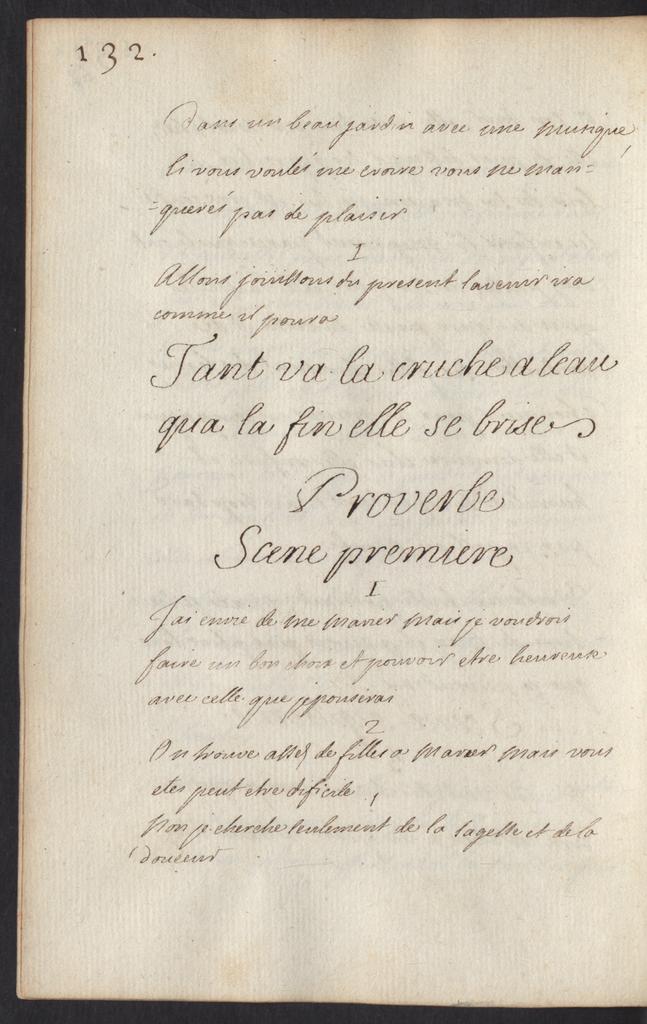 132.
Dans un beau jardin avec une musique,
si vous voulés me croire vous ne man=
=querés pas de plaisir
I
Allons jouissons du present lavenir ira
comme il poura
Tant va la cruche a leau
qua la fin elle se brise
Proverbe
Scene premiere
I
Jai envie de me marier mais je voudrois
faire un bon choix et pouvoir etre heureux
avec celle que jepouserai
2
On trouve assés de filles a marier mais vous
etes peut etre dificile
1
Non je cherche seulement de la sagesse et de la
douceur